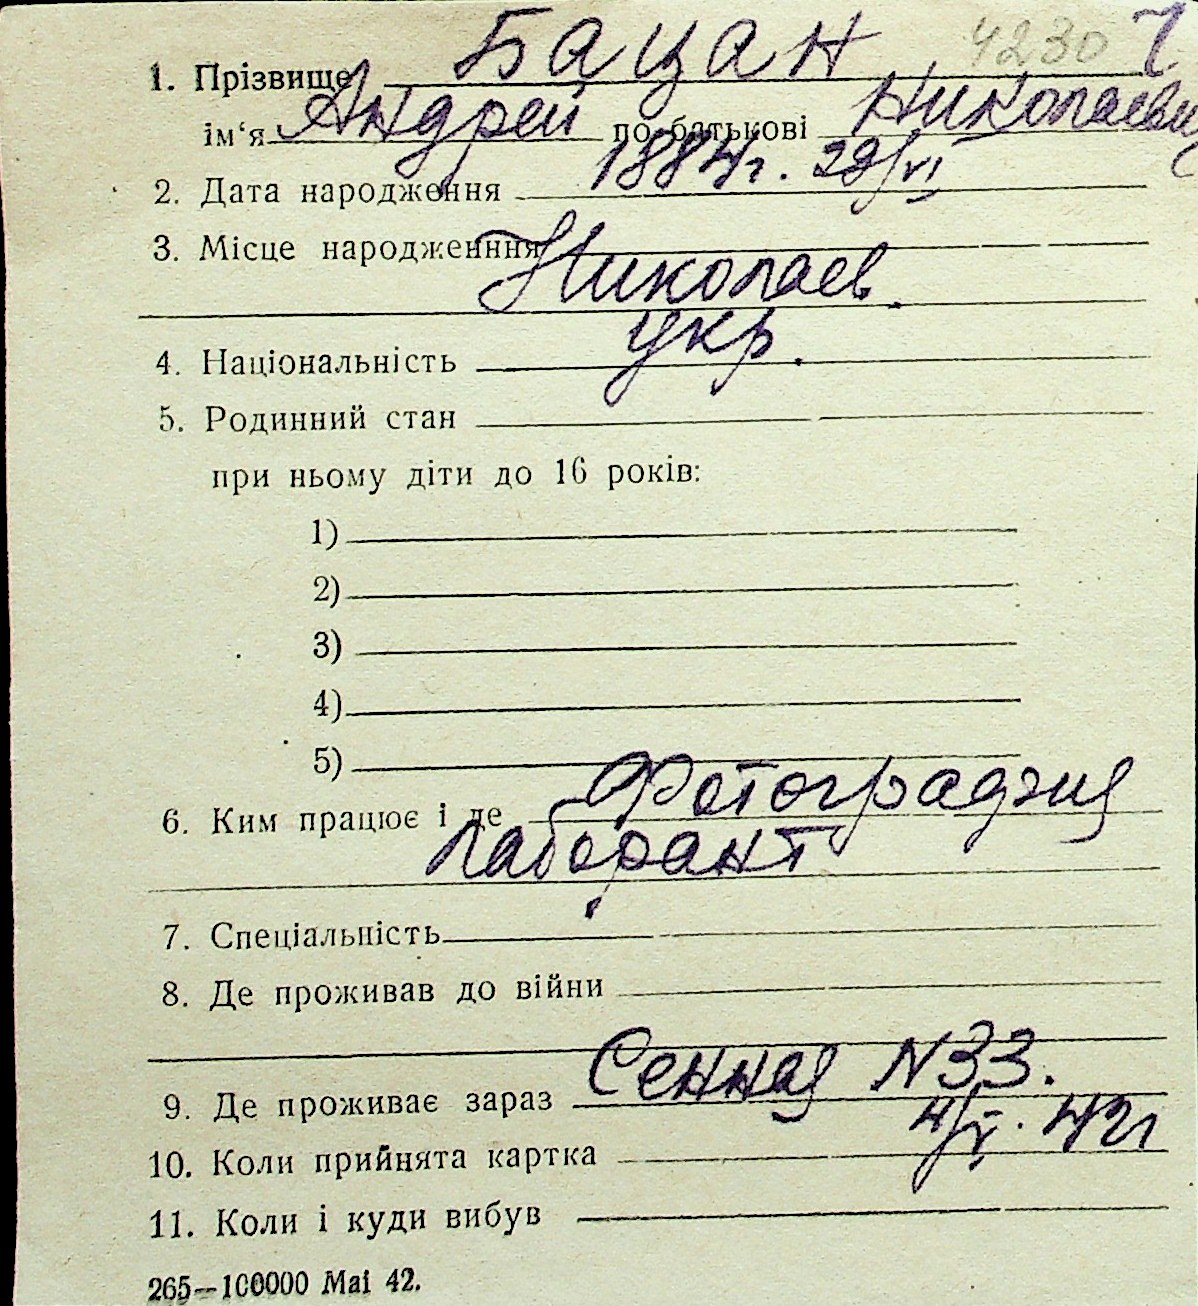 4230
1. Прізвище Бацан
ім‘я Андрей по батькові Николаевич
2. Дата народження 1884г. 29/VI
3. Місце народженння Николаев.
4. Національність укр.
5. Родинний стан
при ньому діти до 16 років:
1)
2)
3)
4)
5)
6. Ким працює і де Фотография
лаборант
7. Спеціальність
8. Де проживав до війни
9. Де проживає зараз Сенная N33.
10. Коли прийнята картка 4/V. 42г
11. Коли і куди вибув
265—100000 Mai 42.